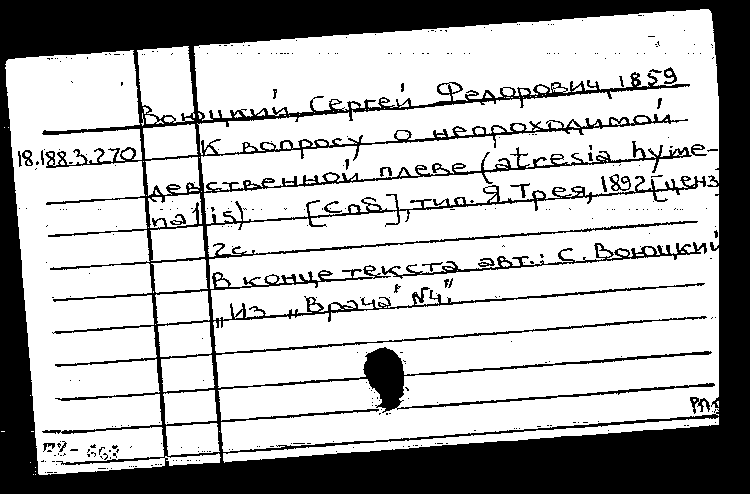 Воюцкий, Сергей Федорович, 1859
18.188.3.270 К вопросу о непроходимой
девственной плеве (atresia hyme-
nalis) [Спб], тип. Я. Трея, 1892 [ценз
2с.
В конце текста авт.: С. Воюцкий
„Из „Врача" №4."